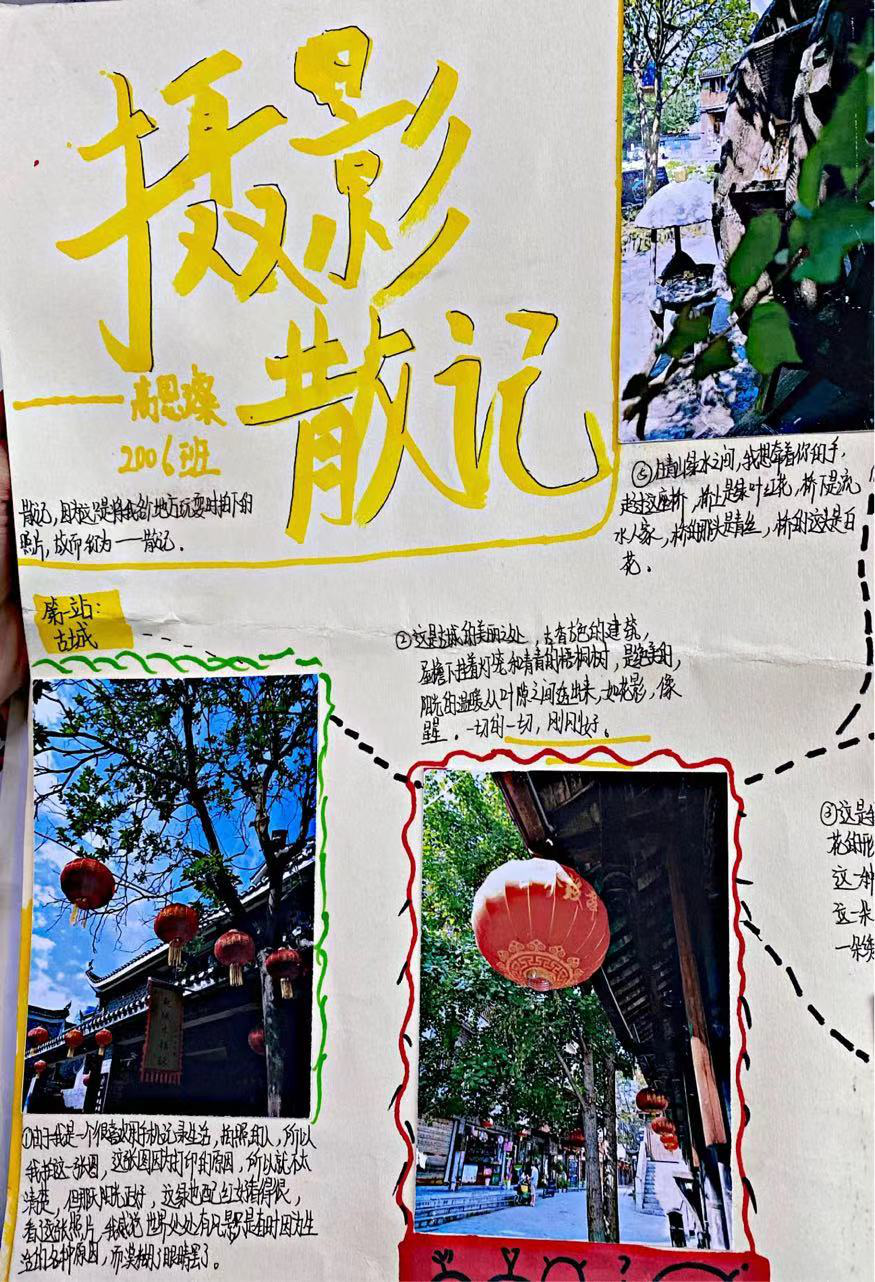 摄影
散记
——高思璨
2006班
散记,因为这只是将我各个地方玩耍时拍下的
照片,故而幻为——散记.
第一站:
古城
④在青山绿水之间,我想牵着你的手,
走过这座桥,桥上是绿叶红花,桥下是流
水人家,桥的那头是青丝,桥的这头是白
花.
②这是古城的美丽之处,古有古色的建筑,
屋檐下挂着灯笼和青青的梧桐树,是绝美的,
阳光的温暖从叶隙之间透出来,如花影,像
星.一切的一切,刚刚好。
③这是
花的形
这一种
这一朵
一朵
①由于我是一个很喜欢用手机记录生活,拍照的人,所以
我拍这一张图,这张图因为打印的原因,所以就不太
清楚,但那天阳光正好,这绿也配红好看得很,
看这张照片,我感觉世界处处有风景只是有时因为生
活的各种原因,而模糊了眼睛罢了.